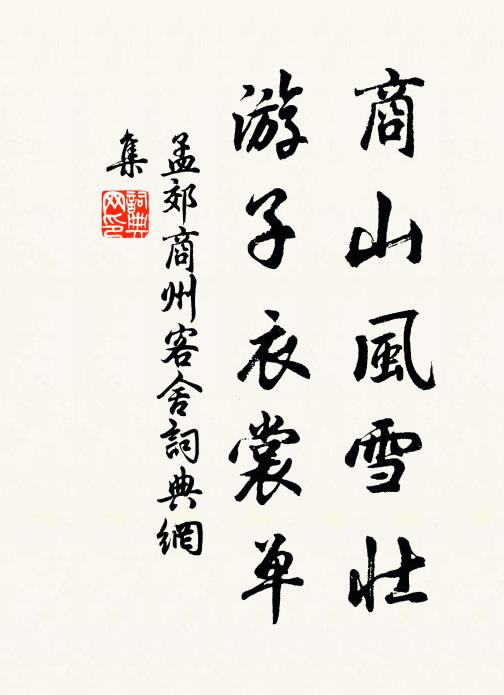 商山風雪壯
游子衣裳单
孟郊商州客舍詞典網
集
詞典
网印